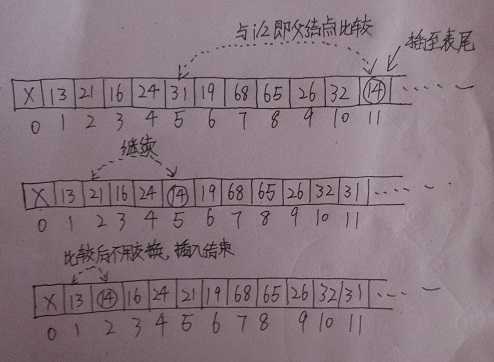 与i/2即父结点比较
插至表尾
X 13 21 16 24 31 19 68 65 26 32 14 ......
0 1 2 3 4 5 6 7 8 9 10 11
继续
X 13 21 16 24 14 19 68 65 26 32 31 ......
0 1 2 3 4 5 6 7 8 9 10 11
比较后不用交换，插入结束
X 13 14 16 24 21 19 68 65 26 32 31 ......
0 1 2 3 4 5 6 7 8 9 10 11